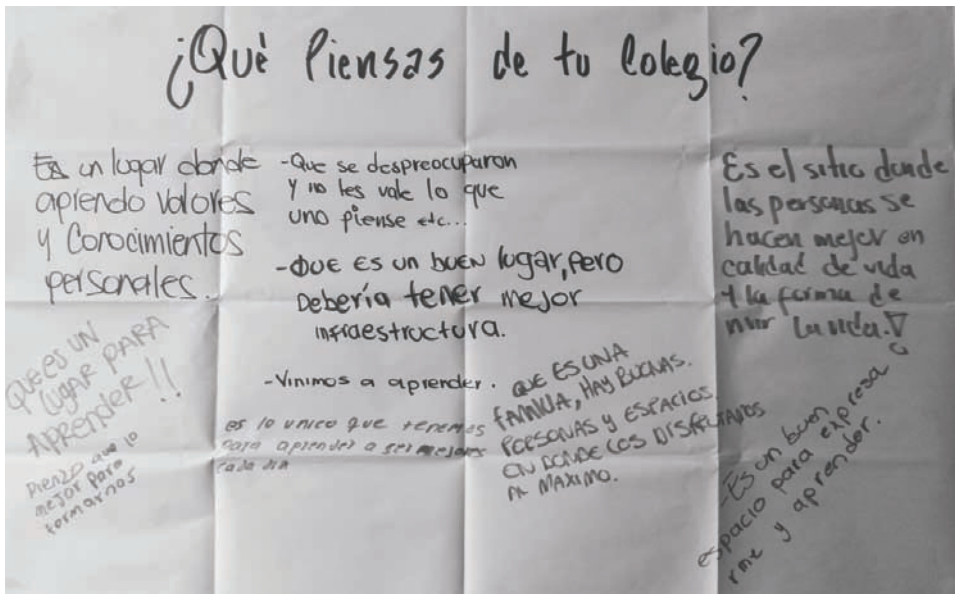 ¿Qué Piensas de tu Colegio?
Es un lugar donde
aprendo valores
y Conocimientos
personales.
QUE ES UN
lugar PARA
APRENDER!!
Pienzo que lo
mejor para
formarnos
-Que se despreocuparon
y no les vale lo que
uno piense etc...
-QUE ES UN bUEN lugar, pero
Debería tener mejor
infraestructura.
-Vinimos a aprender.
es lo unico que tenemos
para aprender a ser mejores
cada dia
QUE ES UNA
FAMILIA, HAY BUENAS.
PERSONAS y ESPACIOS
EN DONDE LOS DISFRUTAMOS
AL MAXIMO.
Es el sitio donde
las personas se
hacen mejor en
calidad de vida
y la forma de
la vida.
-Es un buen
espacio para expresa
rme y aprender.